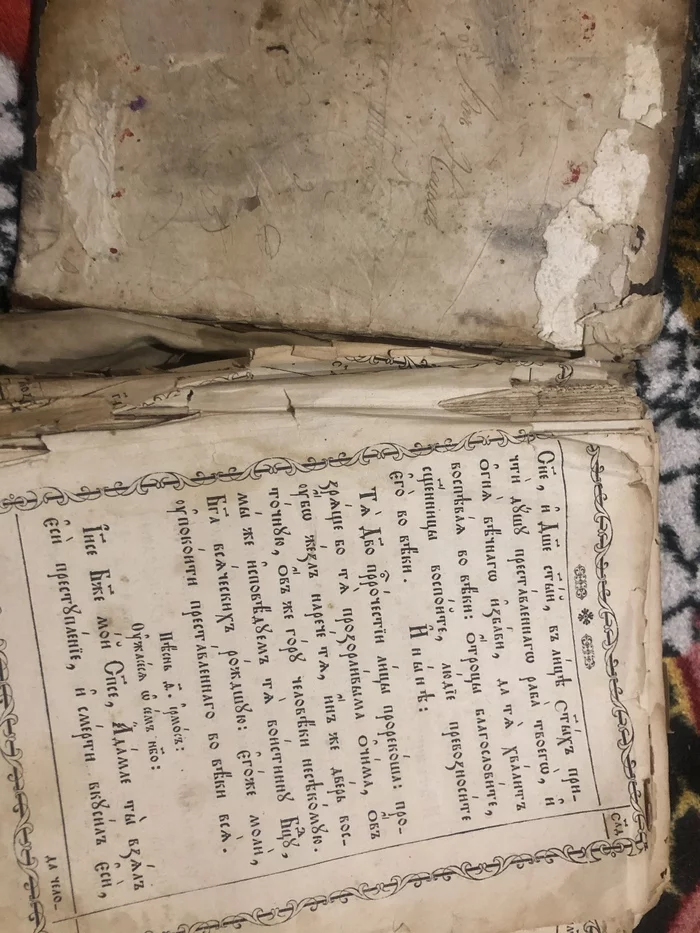 Сн҃е, и҆ Дш҃е ст҃ы́й, въ ли́цѣ ст҃ы́хъ при-
чтѝ дꙋ́шꙋ преста́вленнагѡ раба̀ твоегѡ̀, и҆
ѻ҆гнѧ̀ вѣ́чнагѡ и҆зба́ви, да тѧ̀ хва́литъ
воспѣва́ѧ во вѣ́ки: ѻ҆́троцы благослови́те,
сщ҃е́нницы воспо́йте, лю́дїе превозноси́те
є҆го̀ во вѣ́ки.
И҆ нн҃ѣ:
Тѧ̀ Дв҃о прⷪ҇ро́честїи ли́цы прореко́ша: про-
зрѧ́ще бо тѧ̀ прозорли́выма ѻ҆чи́ма, ѻ҆́въ
ᲂу҆́бѡ же́злъ нарече́ тѧ, и҆́нъ же две́рь вос-
то́чнꙋю, ѻ҆́въ же го́рꙋ человѣ́ки несѣко́мꙋю.
мы́ же и҆сповѣ́дꙋемъ тѧ̀ вои́стиннꙋ Бцⷣꙋ,
Бг҃а всѧ́ческихъ ро́ждшꙋю: є҆го́же молѝ,
ᲂу҆поко́ити преста́вленнаго во вѣ́ки всѧ̑.
Пѣ́снь д҃. і҆рмо́съ:
Оу҆жасе́сѧ ѡ҆ се́мъ нб҃о:
І҆и҃се Бж҃е мо́й Сп҃се, А҆да́мле ты̀ взѧ́лъ
є҆сѝ преступле́нїе, и҆ сме́рти вкꙋси́лъ є҆сѝ,
сла́
да чело-